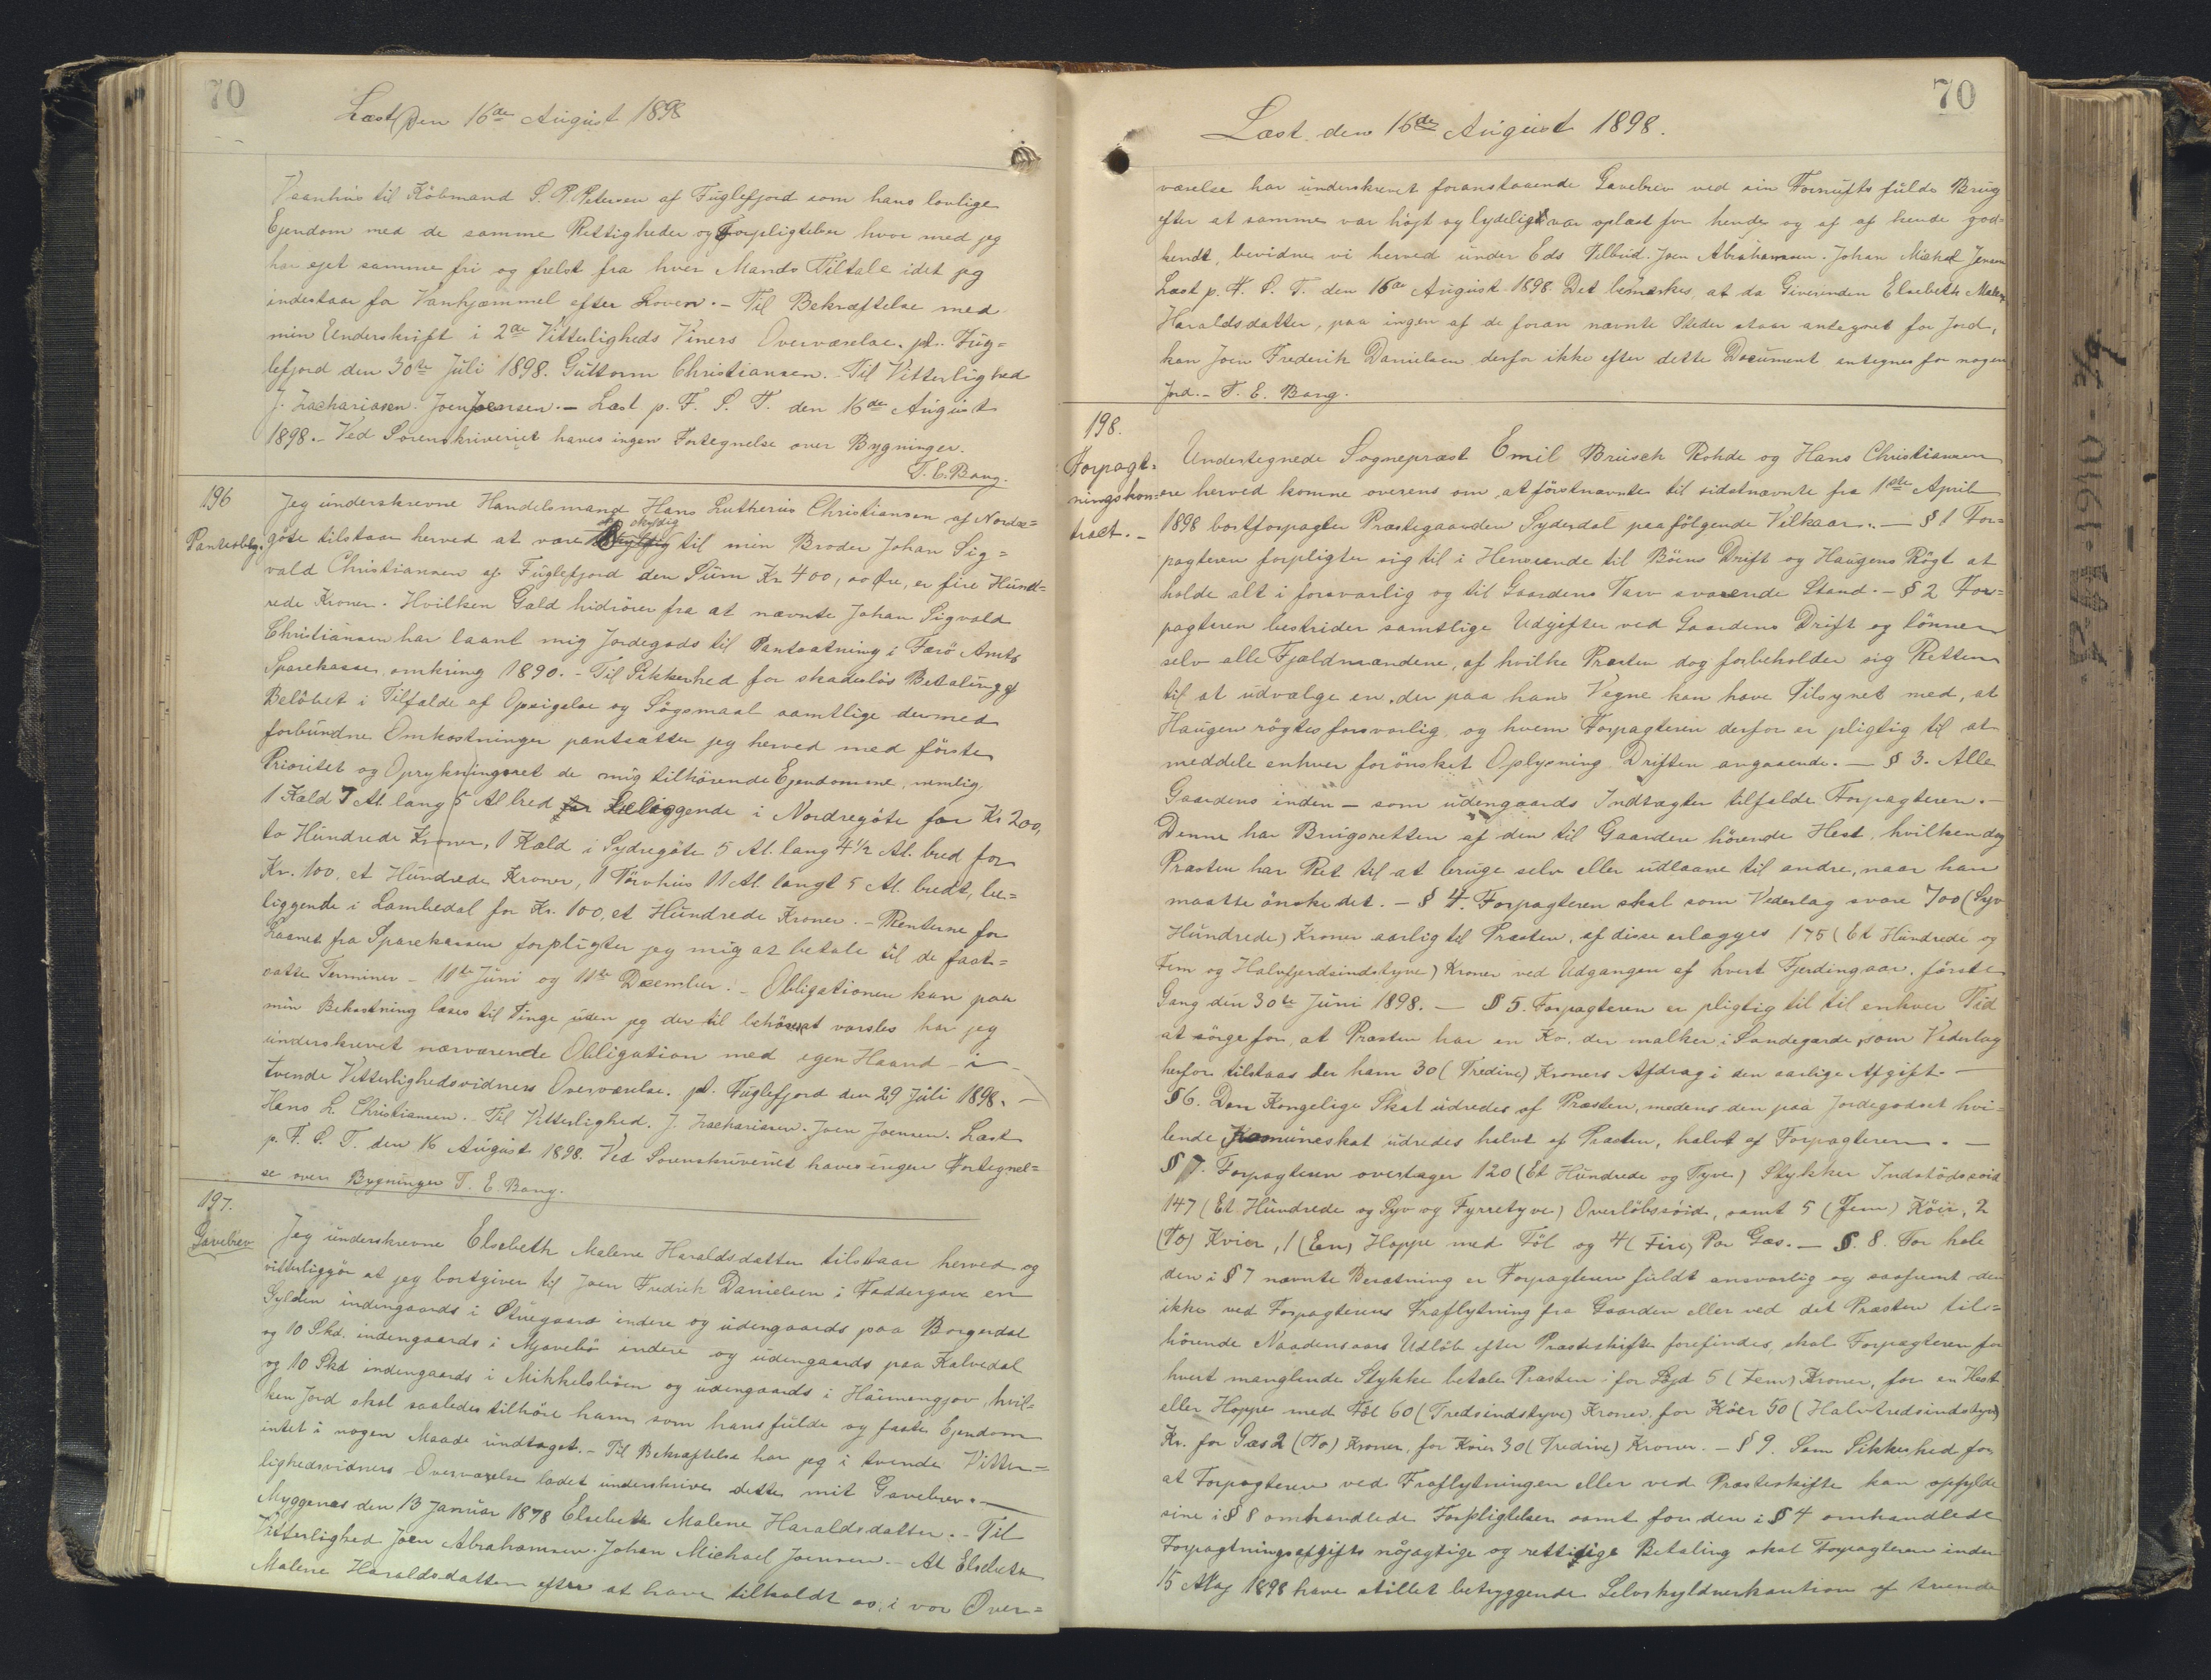 70
Læst den 16de August 1898
Vaanhus til Köbmand S. P. Petersen af Fuglefjord som hans lovlige
Ejendom med de samme Rettigheder og Forpligtelser hvor med jeg
har ejet samme fri og frelst fra hver Mands Tiltale idet jeg
indestaar for Vanhjemmel efter Loven. – Til Bekræftelse med
min Underskrift i 2de Vitterligheds Viners Overværelse. pt. Fug=
lefjord den 30te Juli 1898. Guttorm Christiansen. Til Vitterlighed
J. Zachariasen. Joen Joensen. – Læst p. F. S. T. den 16de August
1898. – Ved Sorenskriveriet haves ingen Fortegnelse over Bygninger.
T. E. Bang.
196
Pantesblg.
Jeg underskrevne Handelsmand Hans Lutherius Christiansen af Nordre=
göte tilstaar herved at være skyldig til min Broder Johan Sig=
vald Christiansen af Fuglefjord den Sum Kr 400, 00 Øre, er fire Hund=
rede Kroner. Hvilken Gæld hidrører fra at nævnte Johan Sigvald
Christiansen har laant mig Jordegods til Pantsætning i Færö Amts
Sparekasse omkring 1890. – Til Sikkerhed for skadeslös Betaling af
Belöbet i Tilfælde af Opsigelse og Sögsmaal samtlige dermed
forbundne Omkostninger pantsætter jeg herved med förste
Prioritet og Oprykningsret de mig tilhörende Ejendomme, nemlig
1 Kæld 7 Al. lang 5 Al bred beliggende i Nordregöte for Kr 200,
to Hundrede Kroner, 1 Kæld i Sydregöte 5 Al. lang 4½ Al. bred for
Kr. 100, et Hundrede Kroner, 1 Törvhus 11 Al. langt 5 Al. bredt, be=
liggende i Lambedal for Kr. 100, et Hundrede Kroner. – Renterne for
Laanet fra Sparekassen forpligter jeg mig at betale til de fast=
satte Terminer – 11te Juni og 11te December. – Obligationen kan paa
min Bekostning læses til Tinge uden jeg der til behöver at varsles har jeg
underskrevet nærværende Obligation med egen Haand – i
tvende Vitterlighedsvidners Overværelse. pt. Fuglefjord den 29 Juli 1898. –
Hans L. Christiansen. Til Vitterlighed. J. Zachariasen. Joen Joensen. Læst
p. F. S. T. den 16 August 1898. Ved Sorenskriveriet haves ingen Fortegnel=
se over Bygninger T. E. Bang.
197.
Gavebrev
Jeg underskrevne Elsebeth Malene Haraldsdatter tilstaar herved og
vitterliggör at jeg bortgiver til Joen Fredrik Danielsen i Faddergave en
Gylden indengaards i Stuegaard indere og udengaards paa Borgerdal
og 10 Skd. indengaards i Mjavebö indere og udengaards paa Kalvedal
og 10 Skd indengaards i Mikkelsböen og udengaards i Haimengjov, hvil=
ken Jord skal saaledes tilhöre ham som hans fulde og faste Ejendom
intet i nogen Maade undtaget. – Til Bekræftelse har jeg i tvende Vitter=
lighedsvidners Overværelse ladet underskrive dette mit Gavebrev. –
Myggenæs den 13 Januar 1878 Elsebeth Malene Haraldsdatter. – Til
Vitterlighed Joen Abrahamsen. Johan Michael Joensen. – At Elsebeth
Malene Haraldsdatter efter at have tilholdt os, i vor Over=
70
Læst den 16de August 1898.
værelse har underskrevet foranstaaende Gavebrev ved sin Fornufts fulde Brug
efter at samme var höjt og lydeligt var oplæst for hende og af af hende god=
kendt, bevidne vi herved under Eds Tilbud. Joen Abrahamsen. Johan Michael Jensen
Læst p. F. S. T. den 16de August 1898. Det bemærkes, at da Giverinden Elsebeth Malene
Haraldsdatter, paa ingen af de foran nævnte Steder staar antegnet for Jord,
kan Joen Frederik Danielsen derfor ikke efter dette Document antegnes for nogen
Jord. – T. E. Bang.
198.
Forpagt=
ningskon=
tract. –
Undertegnede Sognepræst Emil Brusch Rohde og Hans Christiansen
ere herved komne overens om at förstnævnte til sidstnævnte fra 1ste April
1898 bortforpagter Præstegaarden Syderdal paa fölgende Vilkaar. – § 1 For=
pagteren forpligter sig til i Henseende til Böens Drift og Haugens Rögt at
holde alt i forsvarlig og til Gaardens Tarv svarende Stand. – § 2 For=
pagteren bestrider samtlige Udgifter ved Gaardens Drift og lönner
selv alle Fjældmændene, af hvilke Præsten dog forbeholder sig Retten
til at udvælge en, der paa hans Vegne kan have Tilsynet med, at
Haugen rögtes forsvarlig, og hvem Forpagteren derfor er pligtig til at
meddele enhver forönsket Oplysning Driften angaaende. – § 3. Alle
Gaardens inden – som udengaards Indtægter tilfalde Forpagteren. –
Denne har Brugsretten af den til Gaarden hörende Hest, hvilken dog
Præsten har Ret til at bruge selv eller udlaane til andre, naar han
maatte önske det. – § 4. Forpagteren skal som Vederlag svare 700 (Syv
Hundrede) Kroner aarlig til Præsten, af disse erlægges 175 (Et Hundrede og
Fem og Halvfjerdsindstyve) Kroner ved Udgangen af hvert Fjerdingaar, förste
Gang den 30te Juni 1898. – § 5. Forpagteren er pligtig til til enhver Tid
at sörge for, at Præsten har en Ko. der malker i Sandegarde, som Vederlag
herfor tilstaas der ham 30 (Tredive) Kroners Afdrag i den aarlige Afgift. –
§ 6. Den Kongelige Skat udredes af Præsten, medens den paa Jordegodset hvi=
lende Komuneskat udredes halvt af Præsten, halvt af Forpagteren. –
§ 7. Forpagteren overtager 120 (Et Hundrede og Tyve) Stykker Indstödssöid
147 (Et Hundrede og Syv og Fyrretyve) Overlöbssöid, samt 5 (Fem) Köer, 2
(To) Kvier, 1 (Een) Hoppe med Föl og 4 (Fire) Par Gæs. – §. 8. For hele
den i § 7 nævnte Besætning er Forpagteren fuldt ansvarlig og saafremt den
ikke ved Forpagterens Fraflytning fra Gaarden eller ved det Præsten til=
hörende Naadensaars Udlöb efter Præsteskifte forefindes, skal Forpagteren for
hvert manglende Stykke betale Præsten: for Söjd 5 (Fem) Kroner, for en Hest
eller Hoppe med Föl 60 (Tredsindstyve) Kroner, for Köer 50 (Halvtredsindstyve)
Kr. for Gæs 2 (To) Kroner, for Kvier 30 (Tredive) Kroner. – § 9. Som Sikkerhed for
at Forpagteren ved Fraflytningen eller ved Præsteskifte kan opfylde
sine i § 8 omhandlede Forpligtelser samt for den i § 4 omhandlede
Forpagtningsafgifts nöjagtige og rettidige Betaling skal Forpagteren inden
15 Maj 1898 have stillet betryggende Selvskyldnerkaution af tvende